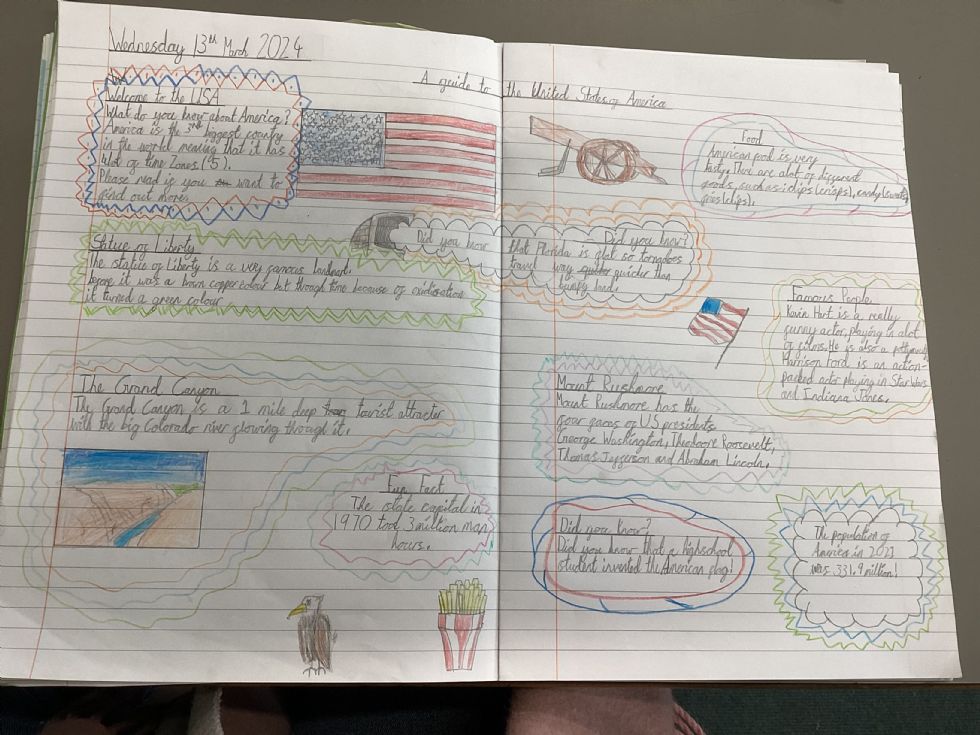 Wednesday 13th March 2024
A guide to the United States of America
Welcome to the USA
What do you know about America?
America is the 3rd biggest country
in the world meaning that it has
alot of time Zones (5).
Please read if you want to
find out more.
Statue of Liberty
The statue of Liberty is a very famous landmark.
before it was a brown copper colour but through time because of oxidisation
it turned a green colour
The Grand Canyon
The Grand Canyon is a 1 mile deep tourist attracter
with the big Colorado river flowing through it.
Fun Fact
The state capital in
1970 took 3 million man
hours.
Food
American food is very
tasty. There are alot of different
foods, such as: chips (crisps), candy (sweets),
fries (chips).
Did you know Did you know?
that Florida is flat so tornadoes
travel way quicker than
bumpy land.
Famous People
Kevin Hart is a really
funny actor, playing in alot
of films. He is also a
Harrison Ford is an action-
packed actor playing in Star Wars
and Indiana Jones.
Mount Rushmore
Mount Rushmore has the
four faces of US presidents
George Washington, Theodoore Roosevelt,
Thomas Jefferson and Abraham Lincoln.
Did you know?
Did you know that a highschool
student invented the American flag!
The population of
America in 2021
was 331.9 million!